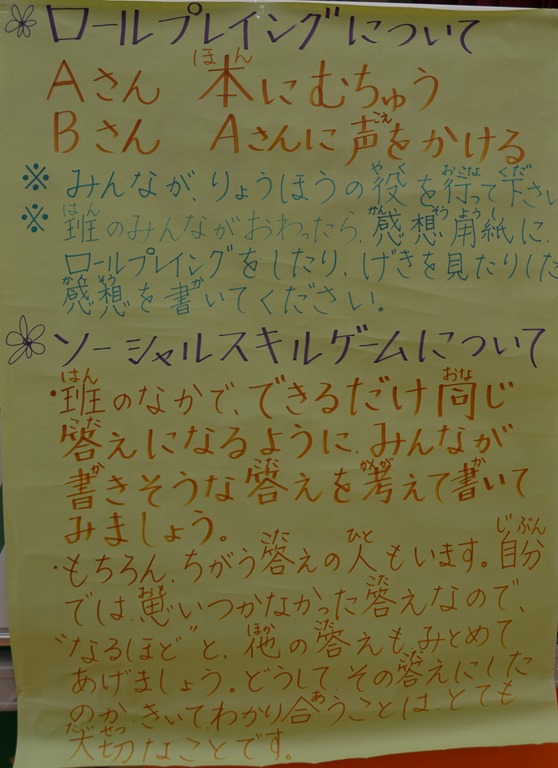 ロールプレイングについて
Aさん 本にむちゅう
Bさん Aさんに声をかける
※ みんなが、りょうほうの役を行って下さい
※ 班のみんながおわったら、感想用紙に、
ロールプレイングをしたり、げきを見たりした
感想を書いてください。
ソーシャルスキルゲームについて
・班のなかで、できるだけ同じ
答えになるように、みんなが
書きそうな答えを考えて書いて
みましょう。
・もちろん、ちがう答えの人もいます。自分
では、思いつかなかった答えなので、
"なるほど"と、他の答えも、みとめて
あげましょう。どうして、その答えにした
のか、きいて、わかり合うことは、とても
大切なことです。